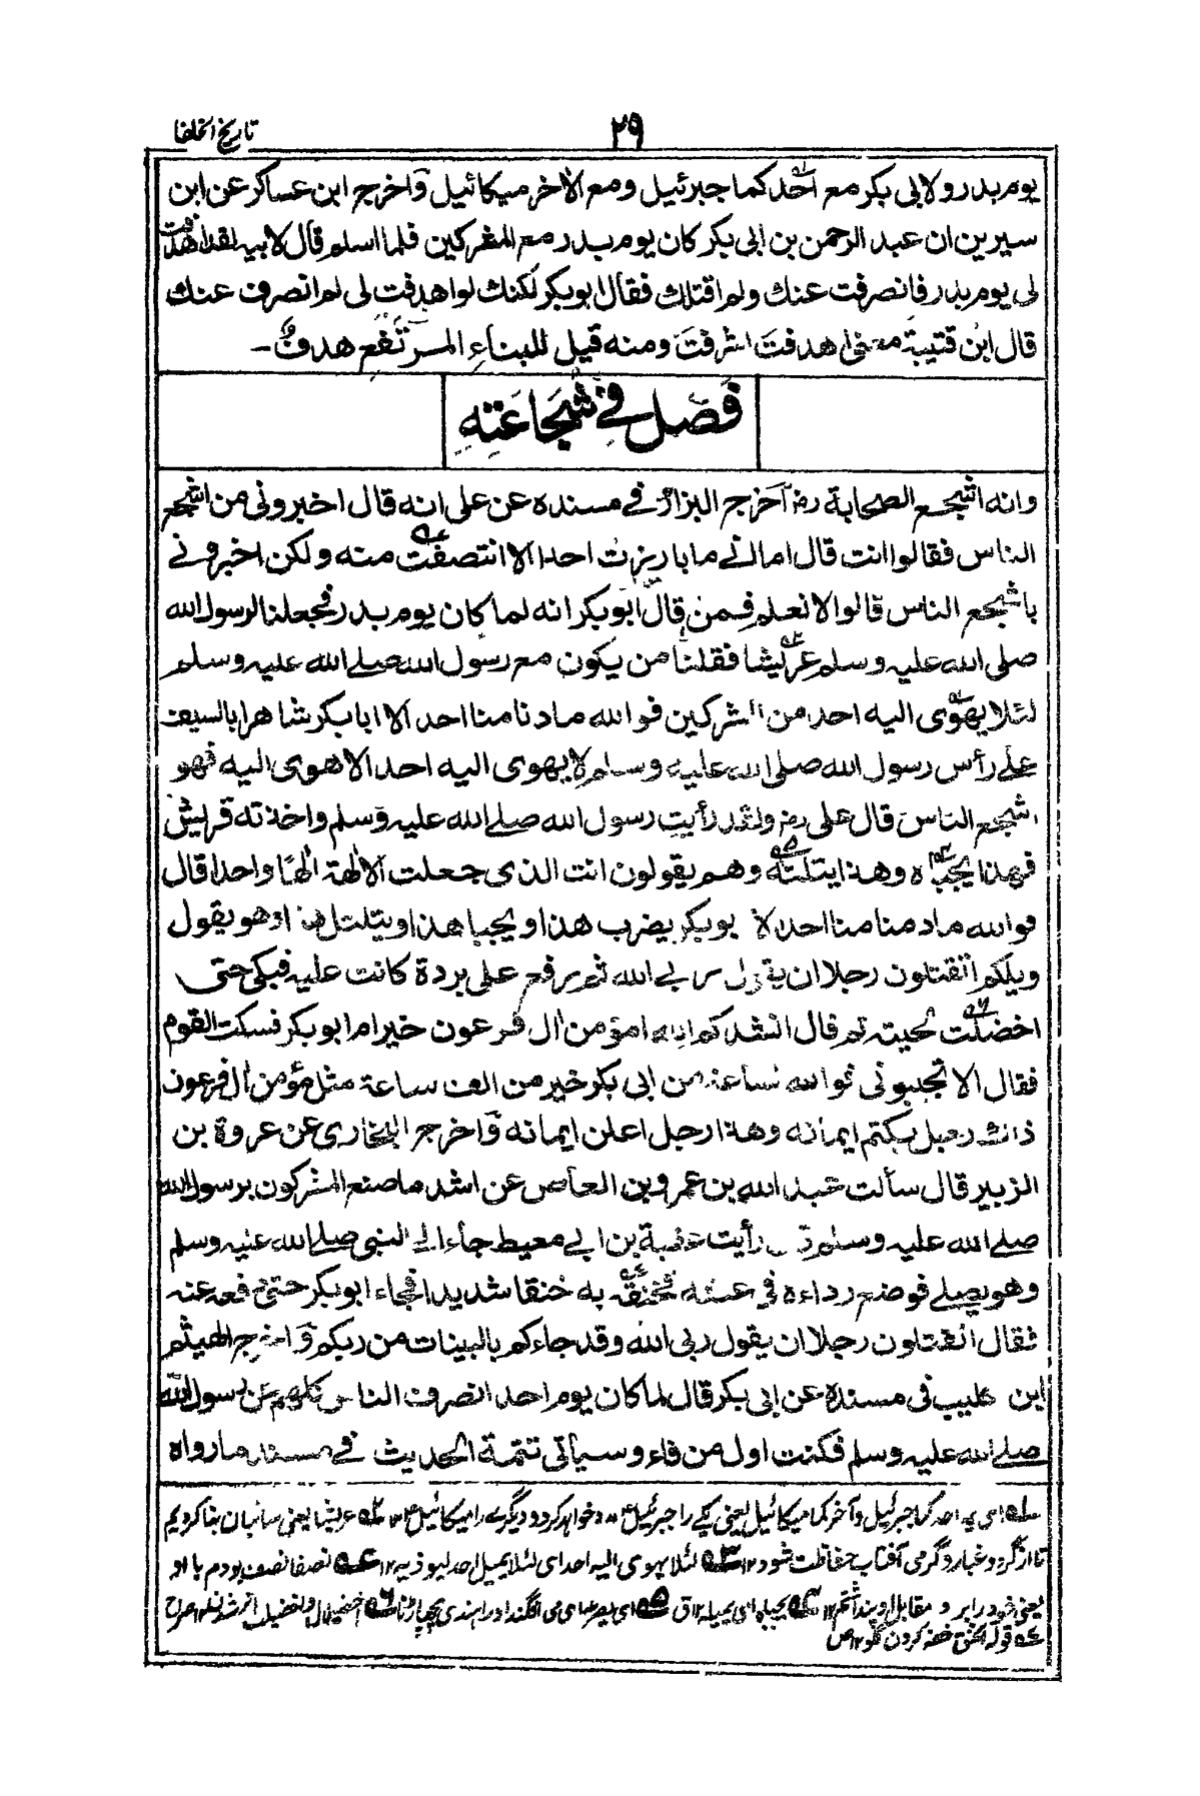 تاريخ الخلفا
٢٩
يوم بدر ولابي بكر مع احد كما جبرئيل ومع الاخر ميكائيل واخرج ابن عساكر عن ابن
سيرين ان عبد الرحمن بن ابي بكر كان يوم بدر مع المشركين فلما اسلم قال لابيه لقد اهدفت
لي يوم بدر فانصرفت عنك ولم اقتلك فقال ابو بكر لكنك لو اهدفت لي لم انصرف عنك
قال ابن قتيبة معنى اهدفت اشرفت ومنه قيل للبناء المرتفع هدف ــ
فصل في شجاعته
وانه اشجع الصحابة رضـ اخرج البزار في مسنده عن علي انه قال اخبروني من اشجع
الناس فقالوا انت قال اما اني ما بارزت احدا الا انتصفت منه ولكن اخبروني
باشجع الناس قالوا لا نعلم فمن قال ابو بكر انه لما كان يوم بدر فجعلنا لرسول الله
صلى الله عليه وسلم عريشا فقلنا من يكون مع رسول الله صلى الله عليه وسلم
لئلا يهوي اليه احد من المشركين فو الله ما دنا منا احد الا ابا بكر شاهرا بالسيف
على رأس رسول الله صلى الله عليه وسلم لا يهوى اليه احد الا هوى اليه فهو
اشجع الناس قال علي رضـ ولقد رأيت رسول الله صلى الله عليه وسلم واخذته قريش
فهذا يجباه وهذا يتلتله وهم يقولون انت الذي جعلت الالهة الها واحدا قال
فو الله ما دنا منا احد الا بو بكر يضرب هذا ويجبا هذا ويتلتل هذا وهو يقول
ويلكم اتقتلون رجلا ان يقول ربي الله ثم رفع علي بردة كانت عليه فبكى حتى
اخضلت لحيته ثم قال انشدكم الله امؤمن ال فرعون خير ام ابو بكر فسكت القوم
فقال الا تجيبوني فو الله لساعة من ابي بكر خير من الف ساعة مثل مؤمن ال فرعون
ذاك رجل يكتم ايمانه وهذا رجل اعلن ايمانه واخرج البخاري عن عروة بن
الزبير قال سألت عبد الله بن عمرو بن العاص عن اشد ما صنع المشركون برسول الله
صلى الله عليه وسلم قال رأيت عقبة بن ابي معيط جاء الى النبي صلى الله عليه وسلم
وهو يصلي فوضع رداءه في عنقه فخنقه به خنقا شديدا فجاء ابو بكر حتى دفعه عنه
فقال اتقتلون رجلا ان يقول ربي الله وقد جاءكم بالبينات من ربكم واخرج الهيثم
ابن كليب في مسنده عن ابي بكر قال لما كان يوم احد انصرف الناس كلهم عن رسول الله
صلى الله عليه وسلم فكنت اول من فاء وسيأتي تتمة الحديث في مسند ما رواه
جبرئيل وآخر كما ميكائيل يعني يكے را جبرئيل مدد خواہد كرد و ديگرے را ميكائيل ١٢ عريشا يعني سائبان بنا كرديم
تا از گرد و غبار و گرمي آفتاب حفاظت شود ١٢ لئلا يهوي اليه احد اي لئلا يميل احد ليوذيه ١٢ نصفا نصف بودم با او
يعني خود را برابر و مقابل او
قوله الخنق خفه كردن گلو ١٢ ص